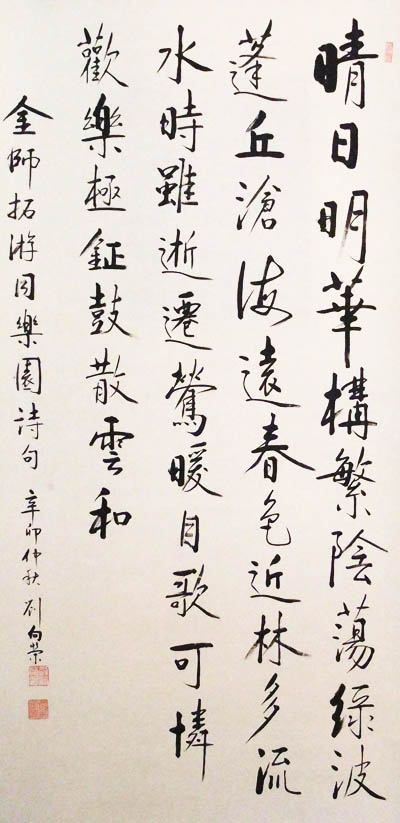 晴日明華構繁陰蕩綠波
蓬丘滄海遠春色近林多流
水時雖逝遷鶯暖自歌可憐
歡樂極鉦鼓散雲和
金師拓游同樂園詩句 辛卯仲秋 劉向榮